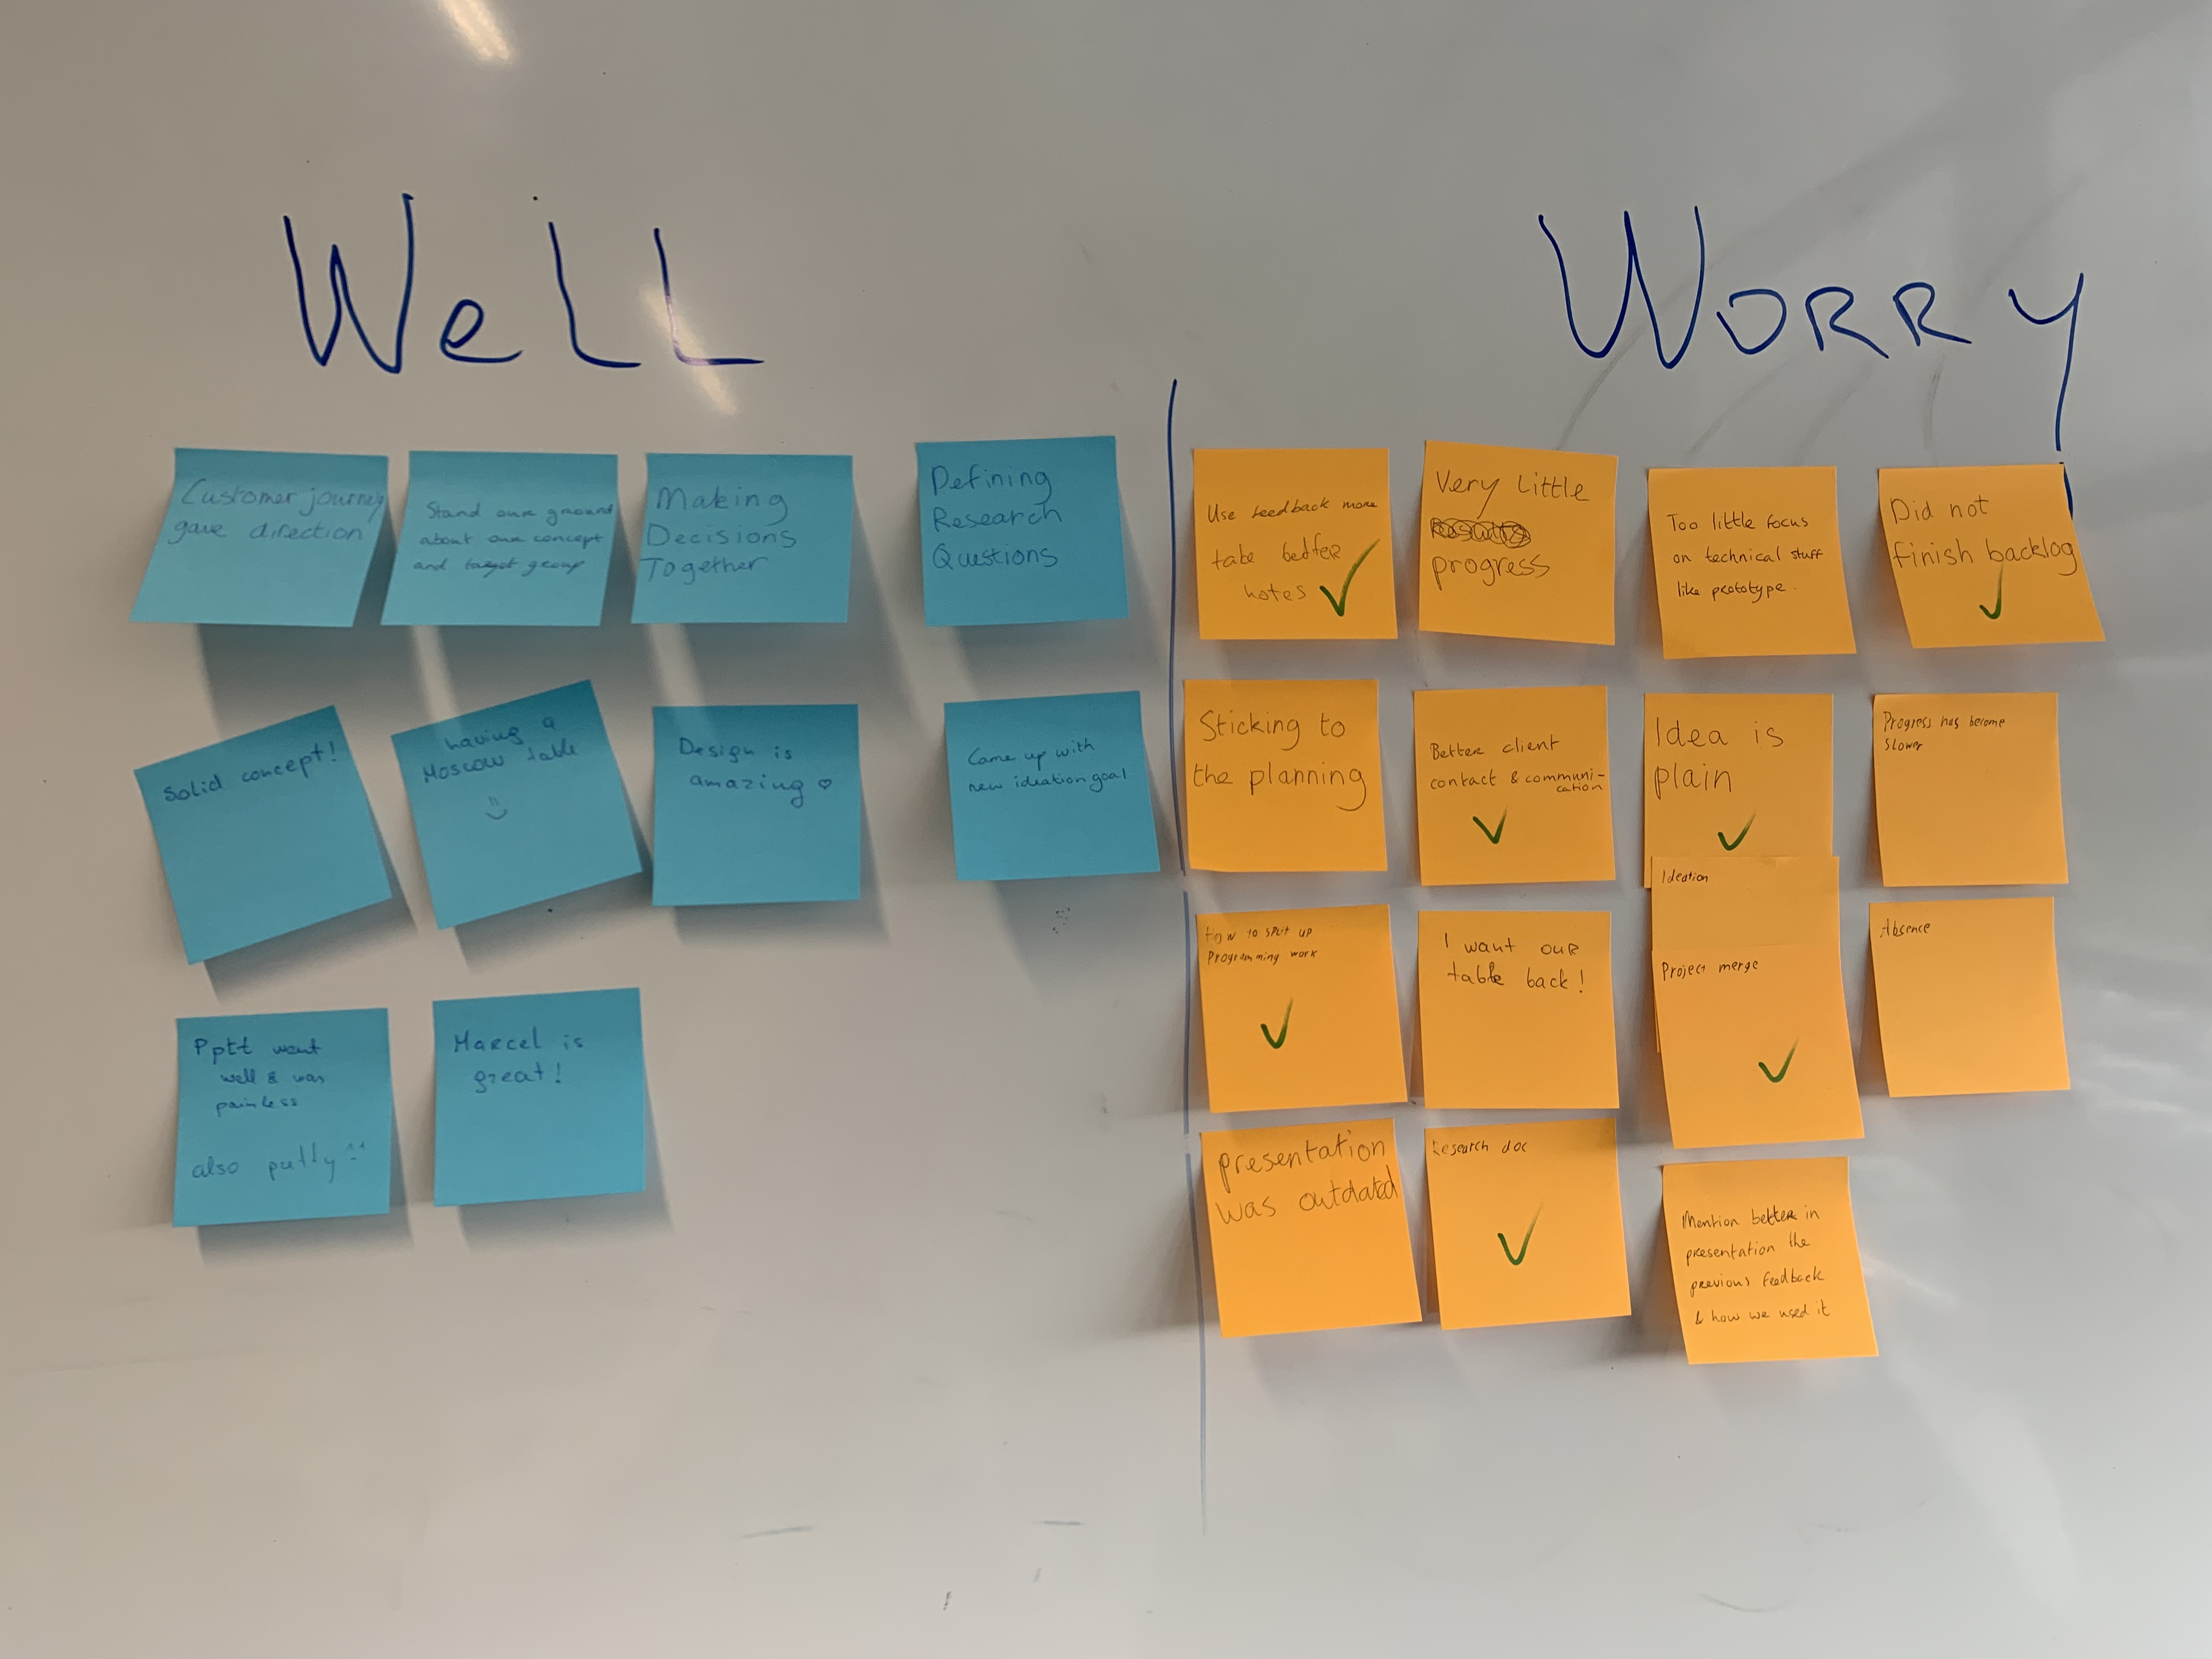 WeLL
Customer journey
gave direction
Stand our ground
about our concept
and target group
Making
Decisions
Together
Defining
Research
Questions
Solid concept!
having a
Moscow table
Design is
amazing
Came up with
new ideation goal
Pptt went
well & was
painless
also
Marcel is
great!
WORRY
Use feedback more
take better
notes ✓
Very little
progress
Too little focus
on technical stuff
like prototype.
Did not
finish backlog
✓
Sticking to
the planning
Better client
contact & communi-
cation
✓
Idea is
plain
✓
Progress has become
slower
How to split up
Programming work
✓
I want our
table back!
Ideation
Project merge
✓
Absence
presentation
was outdated
Research doc
✓
Mention better in
presentation the
previous feedback
& how we used it